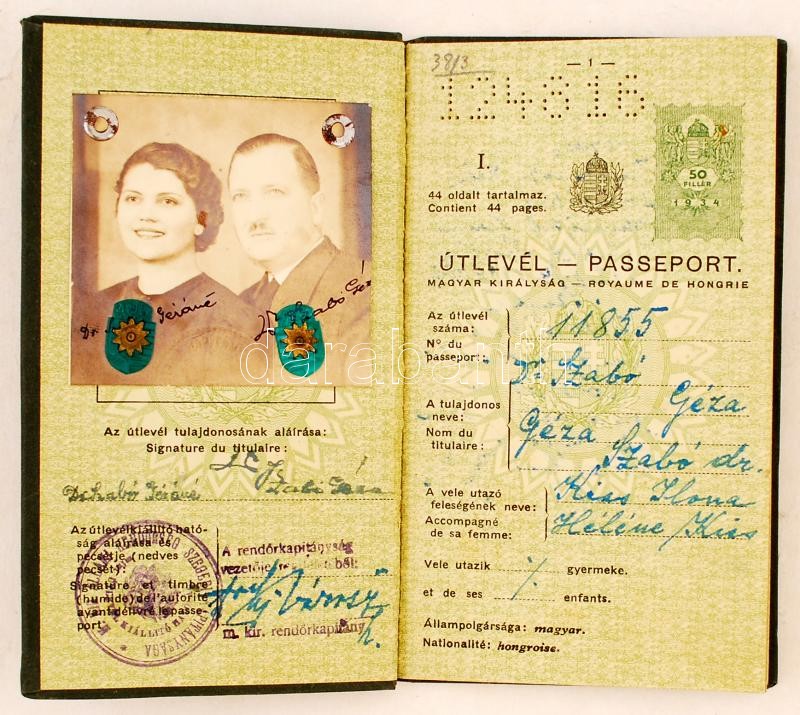 Dr. Gézáné
Dr Szabó Géza
Az útlevél tulajdonosának aláírása:
Signature du titulaire:
Dr Szabó Gézáné
Szabó Géza
Az útlevélkiállító ható-
ság aláírása és
pecsétje (nedves
pecsét):
Signature et timbre
(humide) de l'autorité
ayant délivré le passe-
port.
KIÁLLÍTÓ
A rendőrkapitányság
m. kir. rendőrkapitány
h.
38/3
— 1 —
124816
I.
44 oldalt tartalmaz.
Contient 44 pages.
50
FILLÉR
1934
ÚTLEVÉL — PASSEPORT.
MAGYAR KIRÁLYSÁG — ROYAUME DE HONGRIE
Az útlevél
száma:
Nº du
passeport:
11855
A tulajdonos
neve:
Nom du
titulaire:
Dr Szabó
Géza
Géza
Szabó dr.
A vele utazó
feleségének neve:
Accompagné
de sa femme:
Kiss Ilona
Héléne Kiss
Vele utazik ./. gyermeke.
et de ses enfants.
Állampolgársága: magyar.
Nationalité: hongroise.
darabanth